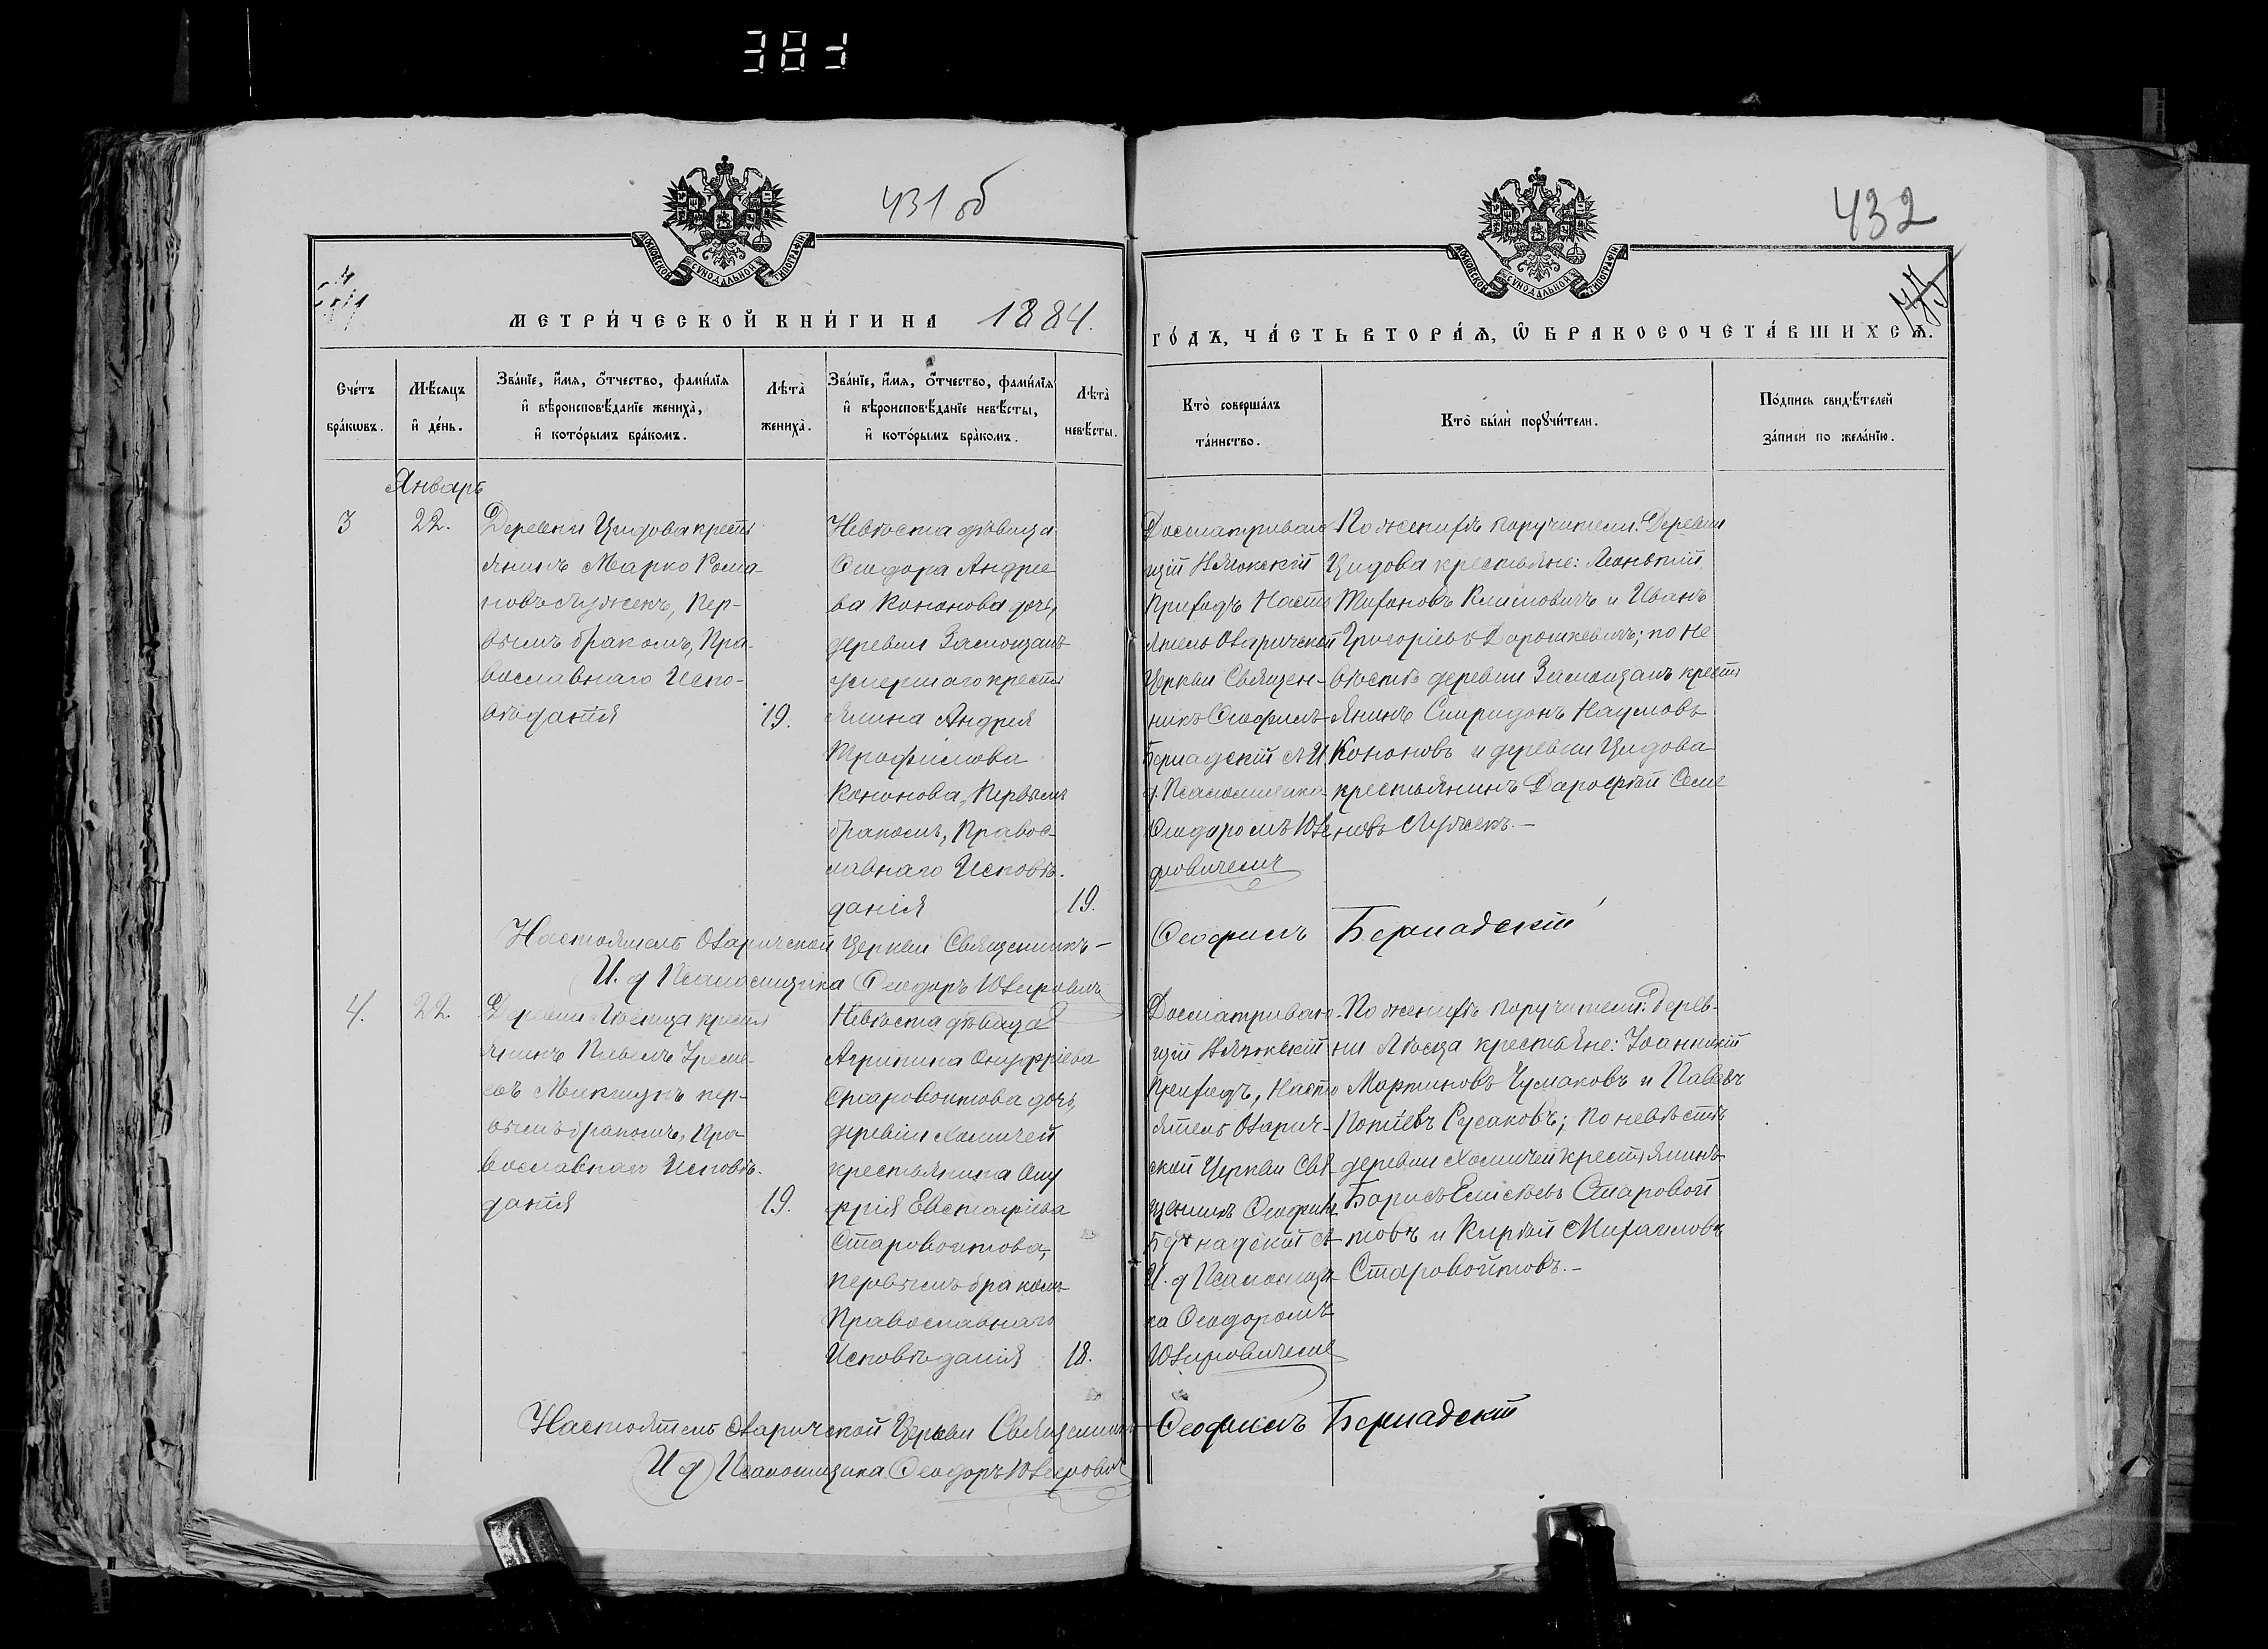 381
431 об
432
МОСКОВСКОЙ СУНОДАЛЬНОЙ ТИПОГРАФІИ
МОСКОВСКОЙ СУНОДАЛЬНОЙ ТИПОГРАФІИ
МЕТРИ́ЧЕСКОЙ КНИ́ГИ НА 1884.
ГО́ДЪ, ЧА́СТЬ ВТОРА́Ѧ, Ѽ БРАКОСОЧЕТА́ВШИХСѦ.
Сче́тъ бра́кѡвъ.
Мѣ́сяцъ и́ де́нь.
Зва́нїе, и́мя, ѻ́тчество, фами́лїя
и́ вѣроисповѣ́данїе жениха̀,
и́ кото́рымъ бра́комъ.
Лѣта̀
жениха̀.
Зва́нїе, и́мя, ѻ́тчество, фами́лїя
и́ вѣроисповѣ́данїе невѣ́сты,
и́ кото́рымъ бра́комъ.
Лѣта̀
невѣ́сты.
Кто̀ соверша́лъ
та́инство.
Кто̀ бы́ли порꙋчи́тели.
По́дпись свидѣ́телей
за́писи по жела́нїю.
Январь
3
22.
Деревни Цидова кресть
янинъ Марко Рома-
новъ Лужекъ, Пер-
вымъ бракомъ, Пра-
вославнаго Испо-
вѣданія
19.
Невѣста дѣвица
Ѳеодора Андрее
ва Кононова дочь,
деревни Замощанъ
умершаго кресть
янина Андрея
Трофимова
Кононова, Первымъ
бракомъ, Правос-
лавнаго Исповѣ-
данія
19.
Досматриваю
щій Няжокскій
Приходъ Насто
ятель Оваричской
Церкви Священ-
никъ Ѳеофилъ
Бернадскій
Псаломщика
Ѳеодоромъ
По женихѣ поручители: Деревни
Цидова крестьяне: Леонтій
Тихоновъ Климовичъ и Иванъ
Григоріевъ Дорошкевичъ; по не
вѣстѣ деревни Замощанъ кресть
янинъ Спиридонъ Наумовъ
Кононовъ и деревни Цидова
крестьянинъ Дорофей Семе
новъ Лужекъ.-
Настоятель Оваричской Церкви Священникъ-
Ѳеофилъ Бернадскій
И. д Псаломщика Ѳеодоръ
4.
22.
Деревни кресть
янинъ Павелъ
евъ пер-
вымъ бракомъ, Пра-
вославнаго Исповѣ-
данія
19.
Невѣста дѣвица
Агрипина Онуфріева
Старовоитова дочь,
деревни Хомичей
крестьянина Ону
фрія Евстафіева
Старовоитова,
первымъ бракомъ
Православнаго
Исповѣданія
18.
Досматриваю-
щій Няжокскій
Приходъ, Насто
ятель Оварич-
ской Церкви Свя-
щенникъ Ѳеофилъ
Бернадскій
И. д Псаломщи-
ка Ѳеодоромъ
По женихѣ поручители: Дерев-
ни крестьяне: Іоанникій
Мартиновъ Чумаковъ и Павелъ
Русаковъ; по невѣстѣ
деревни Хомичей крестьянинъ
Борисъ Елисѣевъ Старовой
товъ и Кирѣй Михаиловъ
Старовойтовъ.-
Настоятель Оваричской Церкви Священникъ
Ѳеофилъ Бернадскій
И д Псаломщика Ѳеодоръ